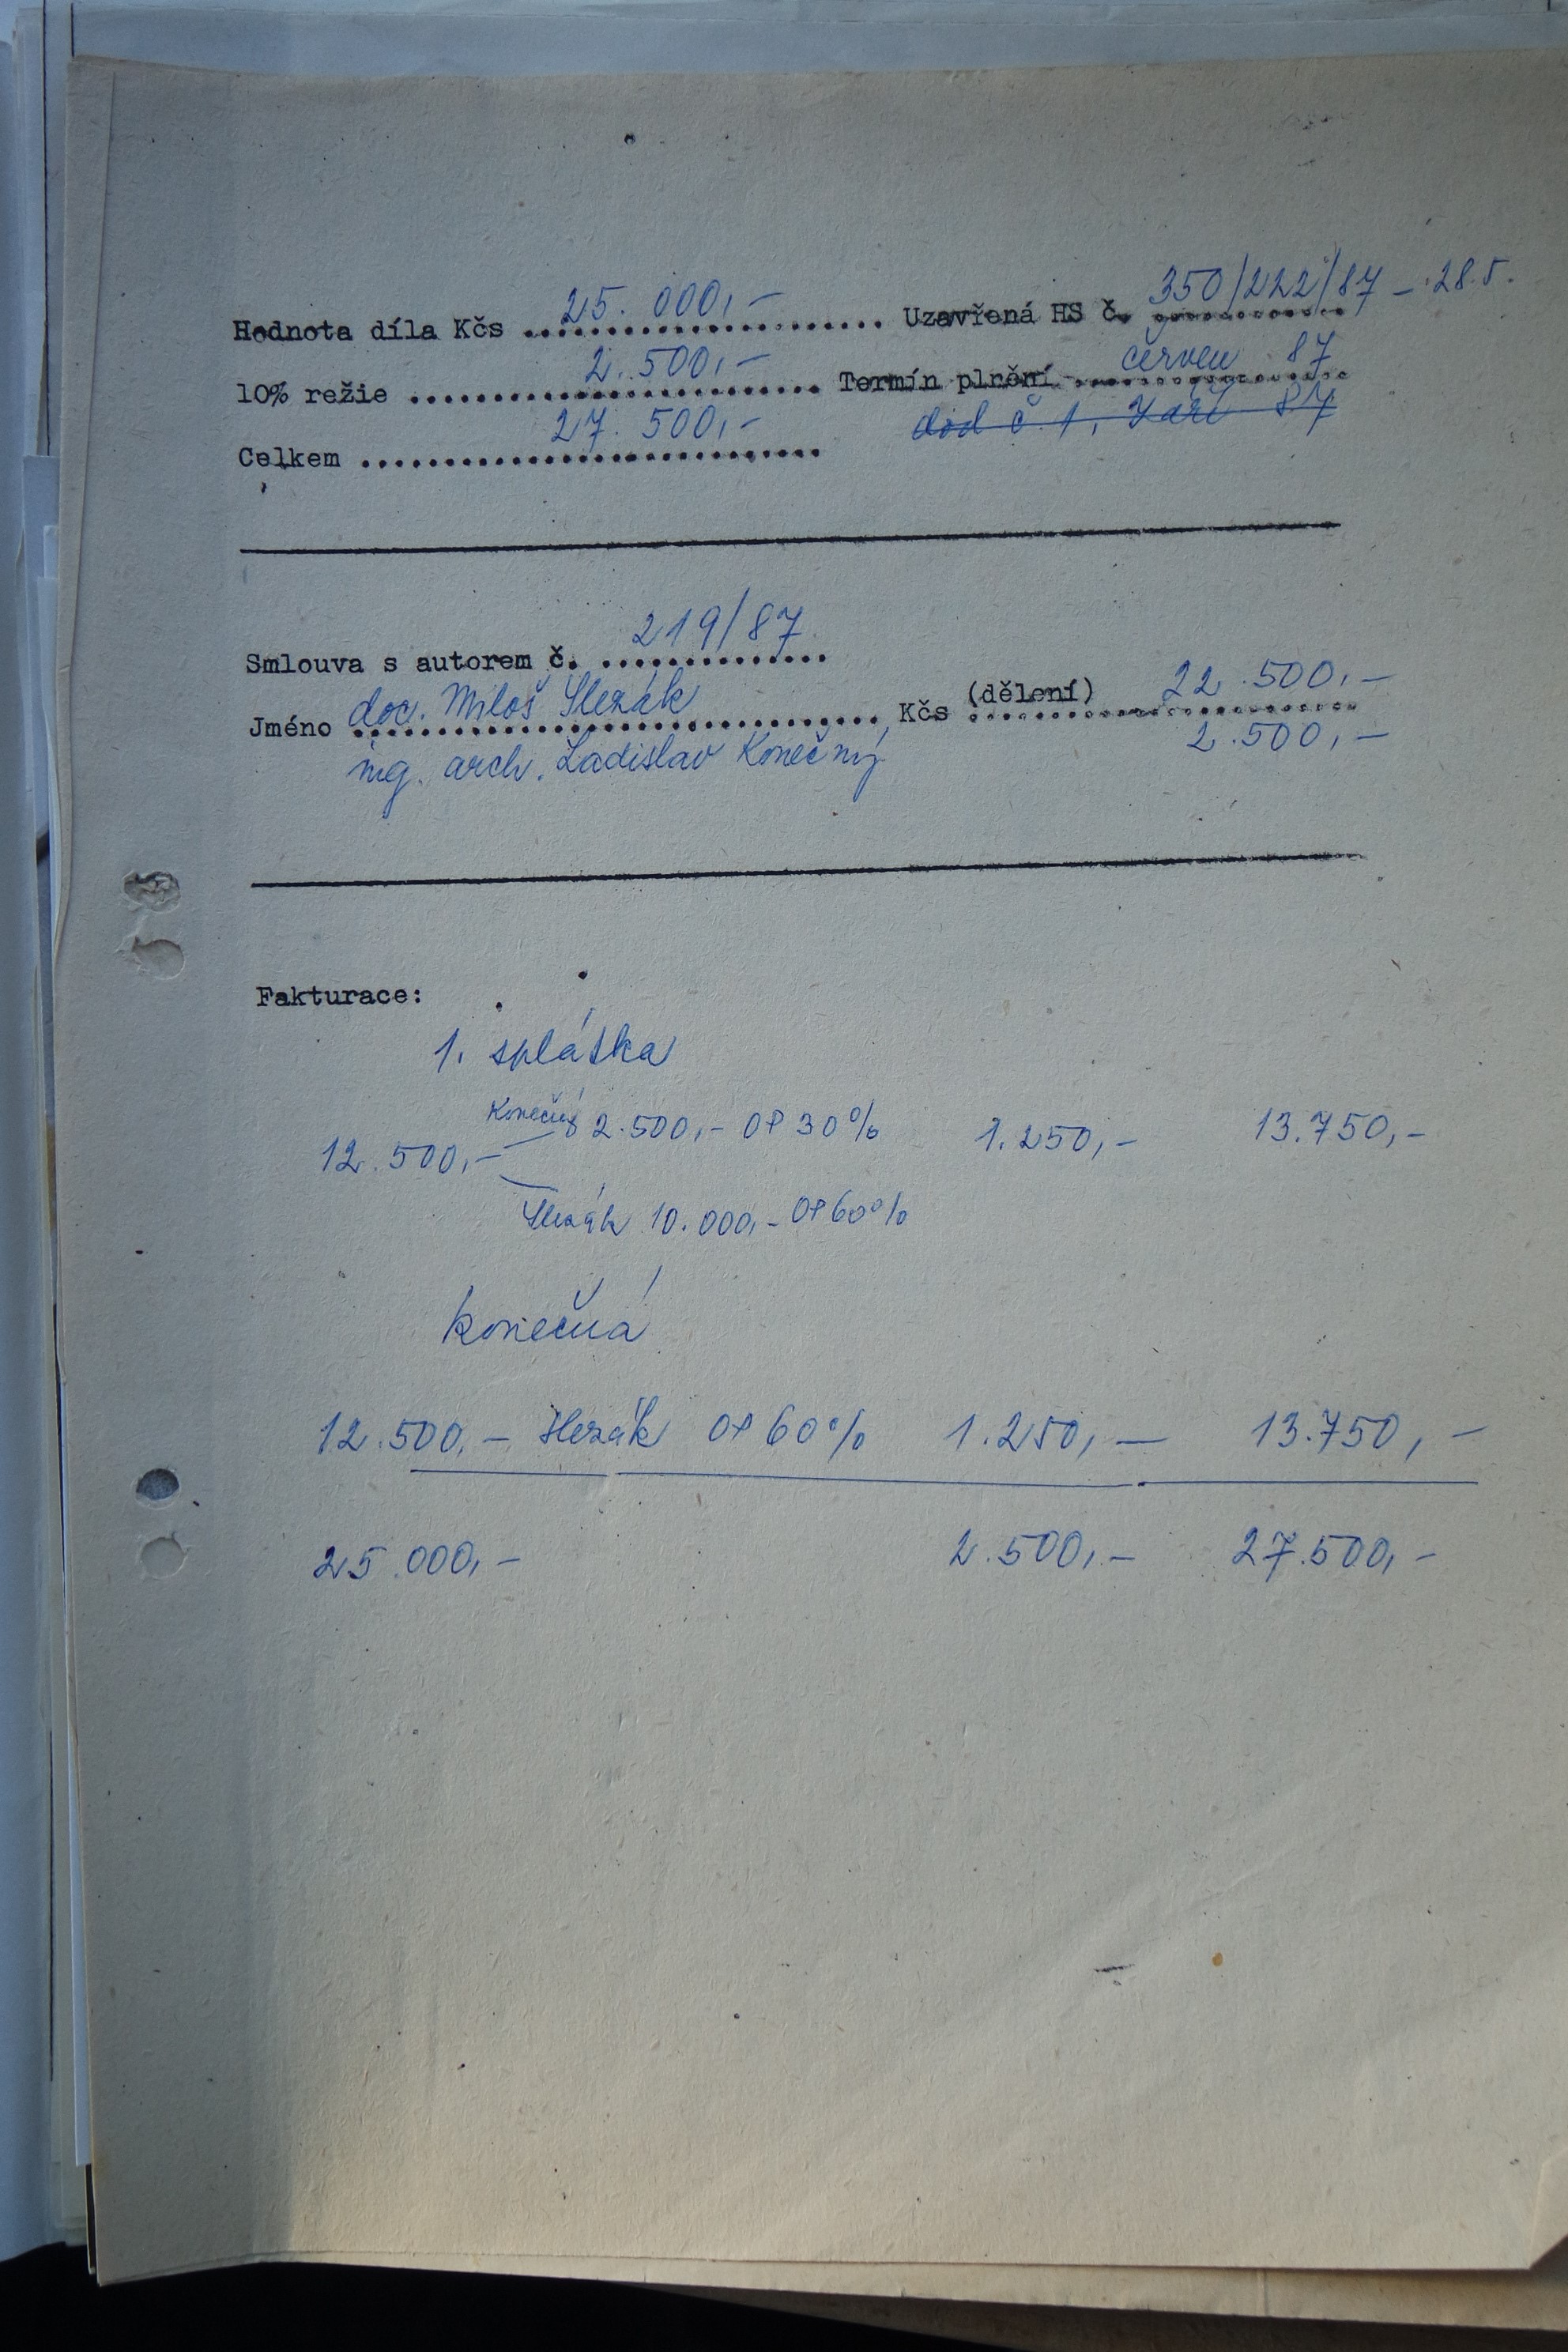 Hodnota díla Kčs .......................... 25.000,- Uzavřená HS č. .............. 350/222/87 – 28.5.
10% režie .............................. 2.500,- Termín plnění .................... červen 87
Celkem .................................. 27.500,- dod č. 1, Září 87
Smlouva s autorem č. ............... 219/87
Jméno doc. Miloš Slezák .................................. Kčs (dělení) ............................ 22.500,-
ing. arch. Ladislav Konečný 2.500,-
Fakturace:
1. splátka
Konečný 2.500,- OP 30%
12.500,- 1.250,- 13.750,-
Slezák 10.000,- OP 60%
konečná
12.500,- Slezák OP 60% 1.250,- 13.750,-
25.000,- 2.500,- 27.500,-